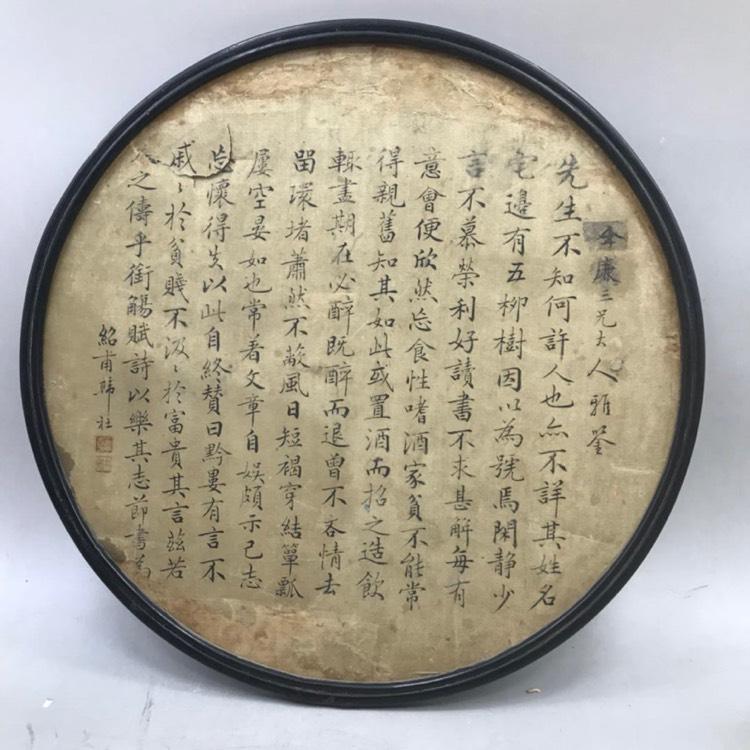 康三兄大人雅鉴
先生不知何許人也亦不詳其姓名
宅邉有五柳樹因以為號焉閑静少
言不慕榮利好讀書不求甚解每有
意會便欣然忘食性嗜酒家貧不能常
得親舊知其如此或置酒而招之造飲
輒盡期在必醉既醉而退曾不吝情去
留環堵蕭然不蔽風日短褐穿結簞瓢
屢空晏如也常着文章自娛頗示己志
忘懷得失以此自終賛曰黔婁有言不
戚〻於貧賤不汲〻於富貴其言兹若
人之儔乎銜觴賦詩以樂其志節書為
紹甫